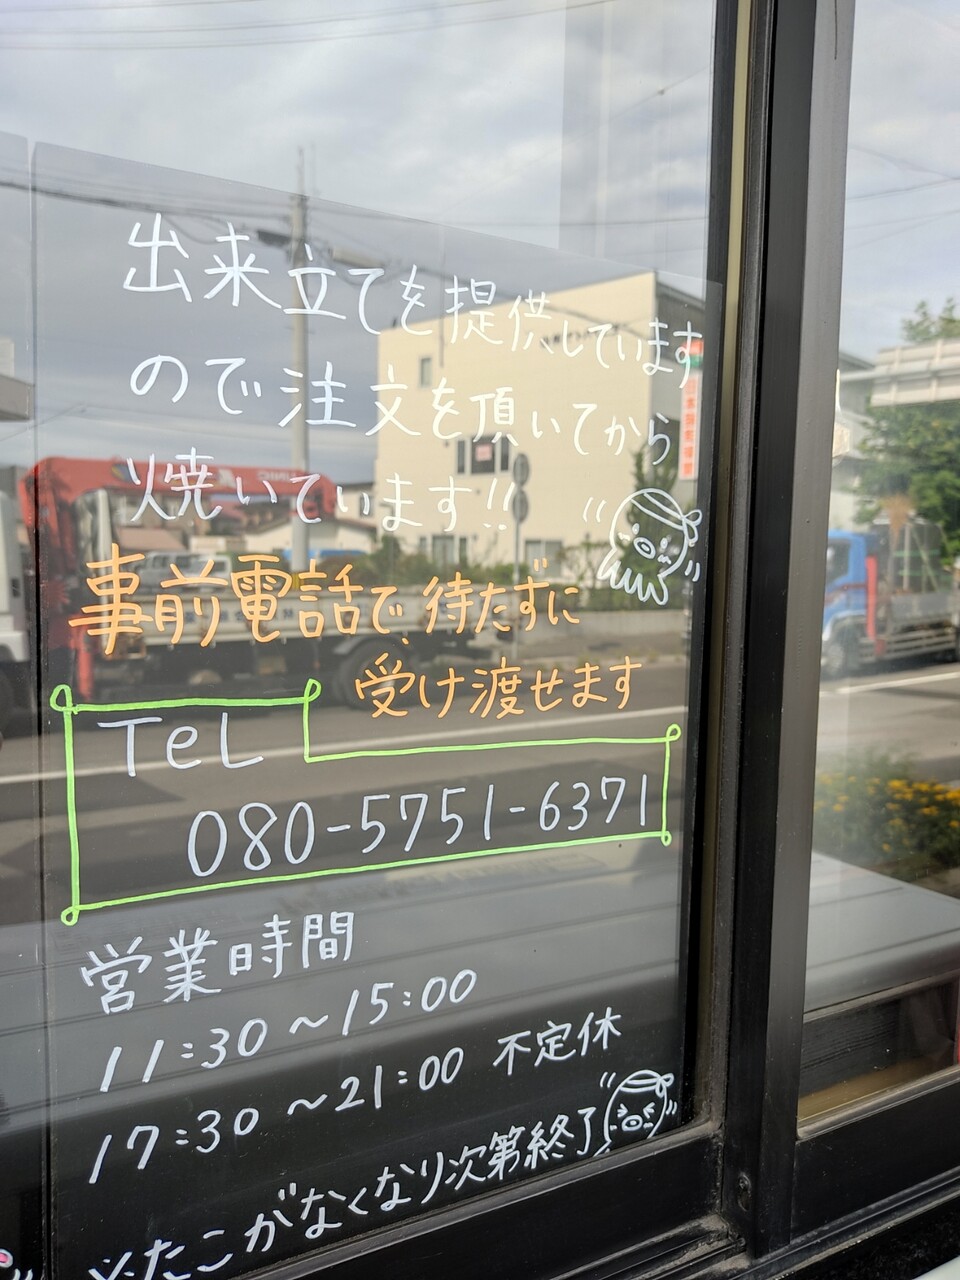 出来立てを提供しています
ので注文を頂いてから
焼いています!!
事前電話で、待たずに
受け渡せます
TeL
080-5751-6371
営業時間
11:30～15:00
17:30～21:00 不定休
※たこがなくなり次第終了